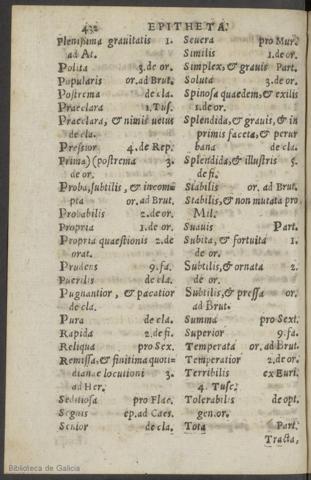 432 EPITHETA.
Plenissima grauitatis 1.
ad At.
Polita 3. de or.
Popularis or. ad Brut.
Postrema de cla.
Praeclara 1. Tus.
Praeclara, & nimis uetus
de cla.
Pressior 4. de Rep.
Prima)(postrema 3.
de or.
Proba, subtilis, & incom
pta or. ad Brut.
Probabilis 2. de or.
Propria 1. de or.
Propria quaestionis 2. de
orat.
Prudens 9. fa.
Puerilis de cla.
Pugnantior, & pacatior
de cla.
Pura de cla.
Rapida 2. de fi.
Reliqua pro Sex.
Remissa, & finitima quoti-
dianae locutioni 3.
ad Her.
Seditiosa pro Flac.
Segnis ep. ad Caes.
Senior de cla.
Seuera pro Mur.
Similis 1. de or.
Simplex, & grauis Part.
Soluta 3. de or.
Spinosa quaedam, & exilis
1. de or.
Splendida, & grauis, & in
primis faceta, & perur
bana de cla.
Splendida, & illustris 5.
de fi.
Stabilis or. ad Brut.
Stabilis, & non mutata pro
Mil.
Suauis Part.
Subita, & fortuita 1.
de or.
Subtilis, & ornata 2.
de or.
Subtilis, & pressa or.
ad Brut.
Summa pro Sext.
Superior 9. fa.
Temperata or. ad Brut.
Temperatior 2. de or.
Terribilis ex Euri.
4. Tusc.
Tolerabilis de opt.
gen. or.
Tota Part.
Tracta,
Biblioteca de Galicia